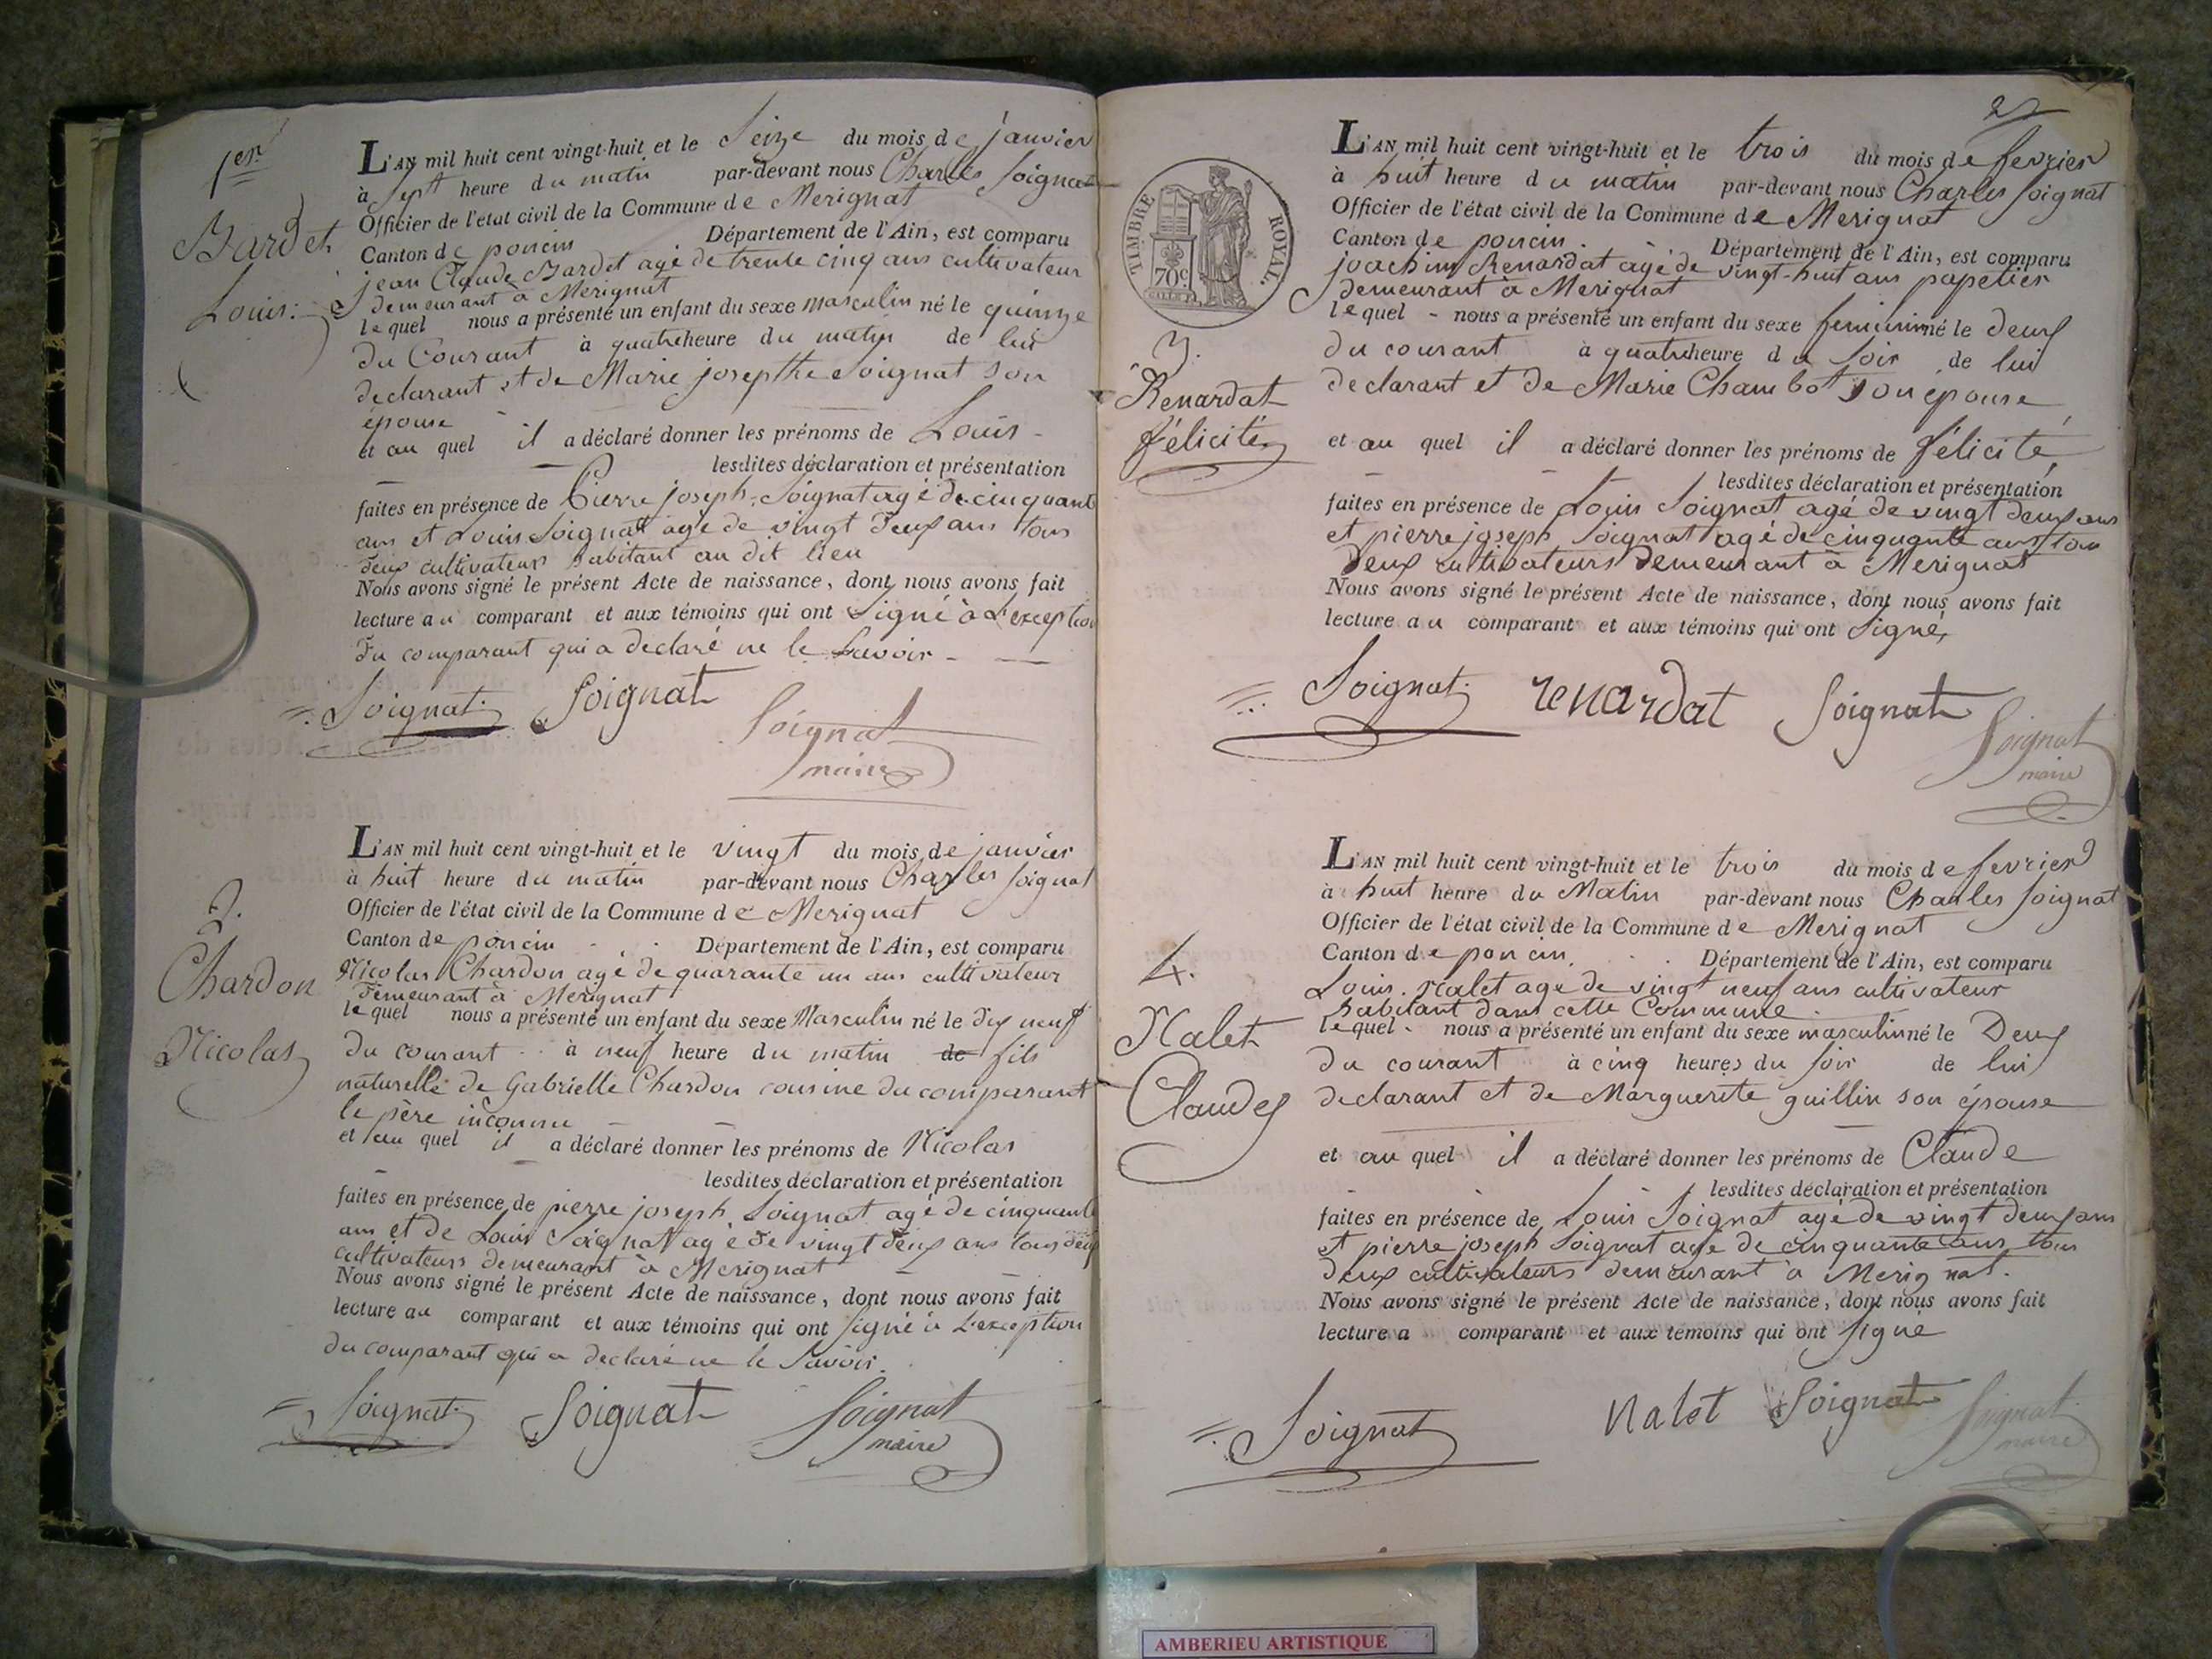 1er
Bardet
Louis.
L'AN mil huit cent vingt-huit et le Seize du mois de janvier
à Sept heure du matin par-devant nous Charles Soignat
Officier de l'état civil de la Commune de Merignat
Canton de poncin Département de l'Ain, est comparu
jean Claude Bardet agé de trente cinq ans cultivateur
demeurant à Merignat
lequel nous a présenté un enfant du sexe masculin né le quinze
du Courant à quatre heure du matin de lui
declarant et de Marie josepthe Soignat son
épouse
et au quel il a déclaré donner les prénoms de Louis -
lesdites déclaration et présentation
faites en présence de Pierre joseph Soignat agé de cinquante
ans et Louis Soignat agé de vingt deux ans tous
deux cultivateurs habitant au dit lieu
Nous avons signé le présent Acte de naissance, dont nous avons fait
lecture au comparant et aux témoins qui ont Signé à L'exception
du comparant qui a declaré ne le Savoir -
Soignat Soignat
Soignat
maire
2.
Chardon
Nicolas
L'AN mil huit cent vingt-huit et le vingt du mois de janvier
à huit heure du matin par-devant nous Charles Soignat
Officier de l'état civil de la Commune de Merignat
Canton de poncin Département de l'Ain, est comparu
Nicolas Chardon agé de quarante un ans cultivateur
demeurant à Merignat
lequel nous a présenté un enfant du sexe Masculin né le dix neuf
du courant à neuf heure du matin de fils
naturelle de Gabrielle Chardon cousine du comparant
le père inconnu
et au quel il a déclaré donner les prénoms de Nicolas
lesdites déclaration et présentation
faites en présence de pierre joseph Soignat agé de cinquante
ans et de Louis Soignat agé de vingt deux ans tous deux
cultivateurs demeurant à Merignat
Nous avons signé le présent Acte de naissance, dont nous avons fait
lecture au comparant et aux témoins qui ont signé à L'exception
du comparant qui a declaré ne le Savoir.
Soignat Soignat Soignat
maire
TIMBRE ROYAL.
70c.
3.
Renardat
félicité
L'AN mil huit cent vingt-huit et le trois du mois de fevrier
à huit heure du matin par-devant nous Charles Soignat
Officier de l'état civil de la Commune de Merignat
Canton de poncin. Département de l'Ain, est comparu
joachim Renardat agé de vingt-huit ans papetier
demeurant à Merignat
lequel - nous a présenté un enfant du sexe feminin né le deux
du courant à quatre heure du Soir de lui
declarant et de Marie Chambot son épouse
et au quel il a déclaré donner les prénoms de félicité
lesdites déclaration et présentation
faites en présence de Louis Soignat agé de vingt deux ans
et pierre joseph Soignat agé de cinquante ans tous
deux cultivateurs demeurant à Merignat
Nous avons signé le présent Acte de naissance, dont nous avons fait
lecture au comparant et aux témoins qui ont Signé,
Soignat renardat Soignat
Soignat
maire
4.
Nalet
Claude
L'AN mil huit cent vingt-huit et le trois du mois de fevrier
à huit heure du Matin par-devant nous Charles Soignat
Officier de l'état civil de la Commune de Merignat
Canton de poncin. Département de l'Ain, est comparu
Louis Nalet agé de vingt neuf ans cultivateur
habitant dans cette Commune
lequel - nous a présenté un enfant du sexe masculin né le Deux
du courant à cinq heures du Soir de lui
declarant et de Marguerite guillin son épouse
et au quel il a déclaré donner les prénoms de Claude
lesdites déclaration et présentation
faites en présence de Louis Soignat agé de vingt deux ans
et pierre joseph Soignat agé de cinquante ans tous
deux cultivateurs demeurant à Merignat.
Nous avons signé le présent Acte de naissance, dont nous avons fait
lecture a comparant et aux témoins qui ont Signé
Soignat Nalet Soignat Soignat
maire
AMBERIEU ARTISTIQUE